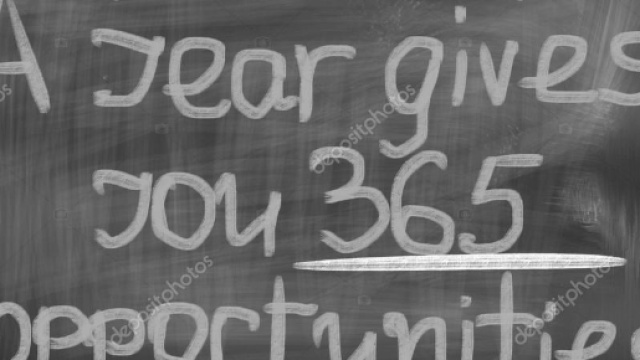 A year gives
you 365
opportunitie
depositphotos
depositphotos
depositphotos